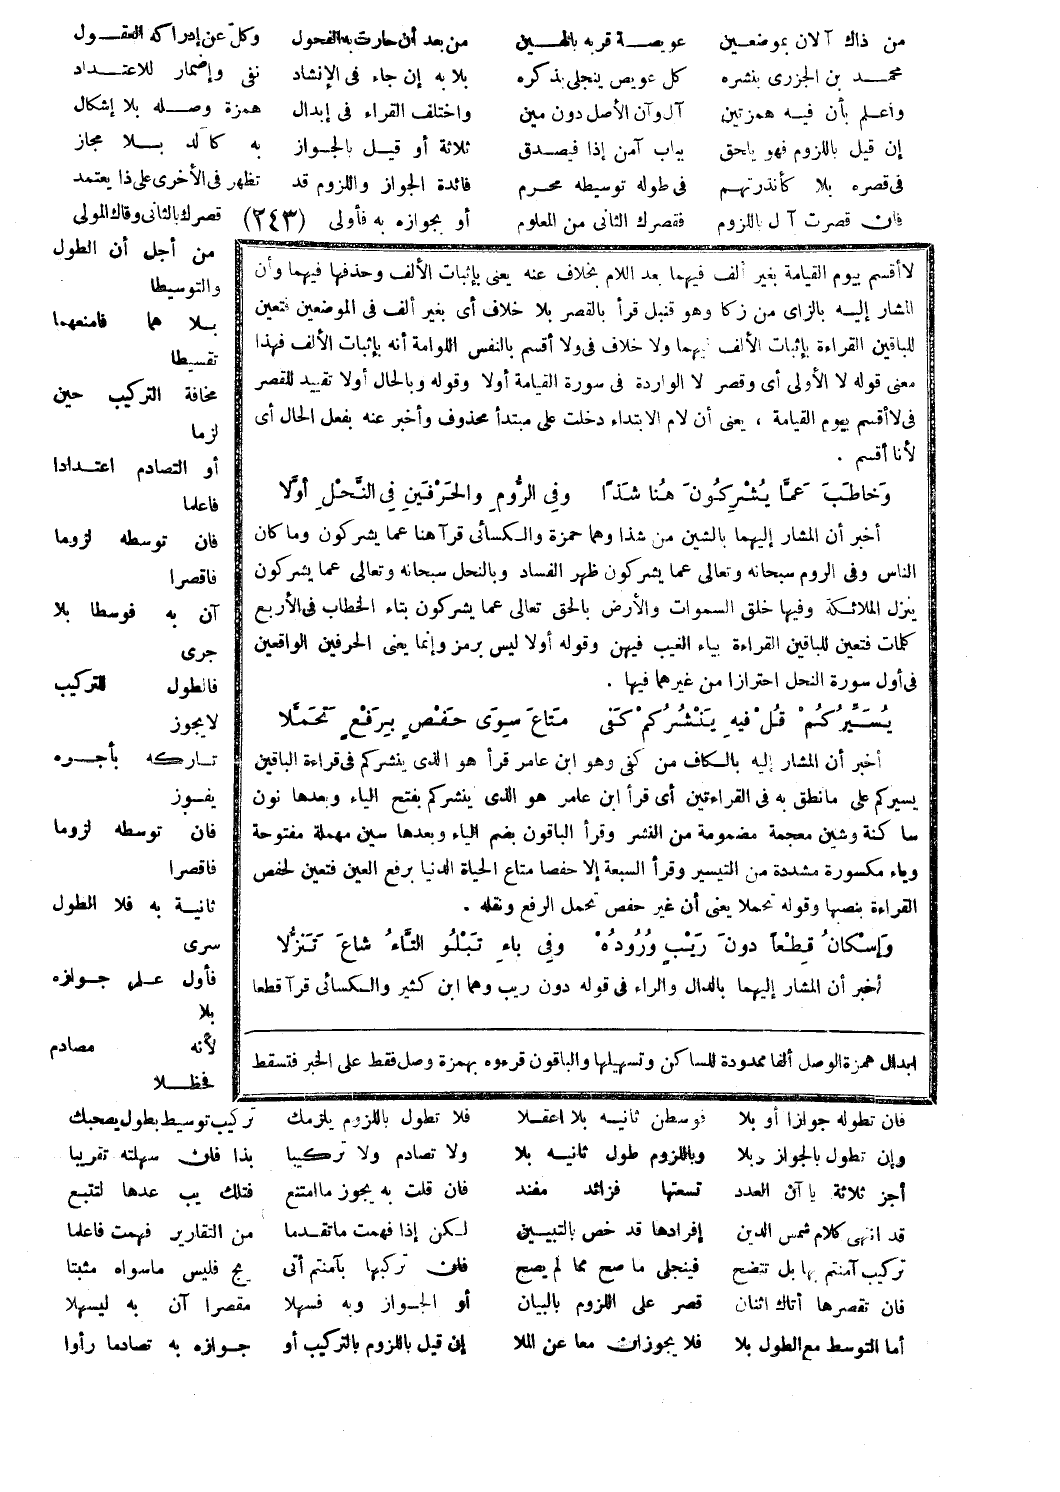 من ذاك آلان بموضعين عويصة قربه باللين من بعد أن حارت به الفحول وكلّ عن إدراكه العقول
محمد بن الجزرى بنشره كل عويص ينجلى بذكره بلا به إن جاء فى الإنشاد نفى وإضمار للاعتداد
واعلم بأن فيه همزتين آل وآن الأصل دون مين واختلف القراء فى إبدال همزة وصله بلا إشكال
إن قيل باللزوم فهو ياحق بباب آمن إذا فيصدق ثلاثة أو قيل بالجواز به كآلد بلا مجاز
فى قصره بلا كأنذرتهم فى طوله توسيطه محرم فائدة الجواز واللزوم قد تظهر فى الأخرى على ذا يعتمد
فان قصرت آل باللزوم فقصرك الثانى من المعلوم أو بجوازه به فأولى (٢٤٣) قصرك بالثانى وقاك المولى
لاأقسم بيوم القيامة بغير ألف فيهما بعد اللام بخلاف عنه يعنى بإثبات الألف وحذفها فيهما وأن
المشار إليه بالزاى من زكا وهو قنبل قرأ بالقصر بلا خلاف أى بغير ألف فى الموضعين فتعين
للباقين القراءة بإثبات الألف فيهما ولا خلاف فى ولا أقسم بالنفس اللوامة أنه بإثبات الألف فهذا
معنى قوله لا الأولى أى وقصر لا الواردة فى سورة القيامة أولا وقوله وبالحال أولا تقييد للقصر
فى لاأقسم بيوم القيامة ، يعنى أن لام الابتداء دخلت على مبتدأ محذوف وأخبر عنه بفعل الحال أى
لأنا أقسم .
وَخاطَبَ عَمَّا يُشْرِكُونَ هُنا شَذًا وفِى الرُّومِ والحَرْفَينِ فِى النَّحْلِ أوَّلَا
أخبر أن المشار إليهما بالشين من شذا وهما حمزة والكسائى قرآ هنا عما يشركون وما كان
الناس وفى الروم سبحانه وتعالى عما يشركون ظهر الفساد وبالنحل سبحانه وتعالى عما يشركون
ينزل الملائكة وفيها خلق السموات والأرض بالحق تعالى عما يشركون بتاء الخطاب فى الأربع
كلمات فتعين للباقين القراءة بياء الغيب فيهن وقوله أولا ليس برمز وإنما يعنى الحرفين الواقعين
فى أول سورة النحل احترازا من غيرهما فيها .
يُسَيِّرُكُمْ قُلْ فيهِ يَنْشُرُكُمْ كَفَى مَتَاعَ سِوَى حَفْصٍ بِرَفْعٍ تَحَمَّلَا
أخبر أن المشار إليه بالكاف من كفى وهو ابن عامر قرأ هو الذى ينشركم فى قراءة الباقين
يسيركم على مانطق به فى القراءتين أى قرأ ابن عامر هو الذى ينشركم بفتح الياء وبعدها نون
ساكنة وشين معجمة مضمومة من النشر وقرأ الباقون بضم الياء وبعدها سين مهملة مفتوحة
وياء مكسورة مشددة من التيسير وقرأ السبعة إلا حفصا متاع الحياة الدنيا برفع العين فتعين لحفص
القراءة بنصبها وقوله تحملا يعنى أن غير حفص تحمل الرفع ونقله .
وَإسْكانُ قِطْعاً دونَ رَيْبٍ وُرُودُهُ وفى باءِ تَبْلُو التَّاءُ شاعَ تَنَزُّلَا
أخبر أن المشار إليهما بالدال والراء فى قوله دون ريب وهما ابن كثير والكسائى قرآ قطعا
ابدال همزة الوصل ألفا ممدودة للساكن وتسهيلها والباقون قرءوه بهمزة وصل فقط على الخبر فتسقط
من أجل أن الطول
والتوسيطا
بلا هما فامنعهما
تقسيطا
مخافة التركيب حين
لزما
أو التصادم اعتدادا
فاعلما
فان توسطه لزوما
فاقصرا
آن به فوسطا بلا
جرى
فالطول للتركيب
لايجوز
تاركه بأجره
يفوز
فان توسطه لزوما
فاقصرا
ثانية به فلا الطول
سرى
فأول على جوازه
بلا
لأنه مصادم
فحظلا
فان تطوله جوازا أو بلا فوسطن ثانيه بلا اعقلا فلا تطول باللزوم يلزمك تركيب توسيط بطول يصحبك
وإن تطول بالجواز وبلا وباللزوم طول ثانيه بلا ولا تصادم ولا تركيبا بذا فان سهلته تقريبا
أجز ثلاثة يا آن العدد تسعتها فزائد مفند فان قلت به يجوز ماامتنع فتلك يب عدها لتتبع
قد انهى كلام شمس الدين إفرادها قد خص بالتبيين لكن إذا فهمت ماتقدما من التقارير فهمت فاعلما
تركيب آمنتم بها بل تتضح فينجلى ما صح مما لم يصح فان تركبها بآمنتم أتى يج فليس ماسواه مثبتا
فان تقصرها أتاك اثنان قصر على اللزوم بالبيان أو الجواز وبه فسهلا مقصرا آن به ليسهلا
أما التوسط مع الطول بلا فلا يجوزان معا عن الملا إن قيل باللزوم بالتركيب أو جوازه به تصادما رأوا